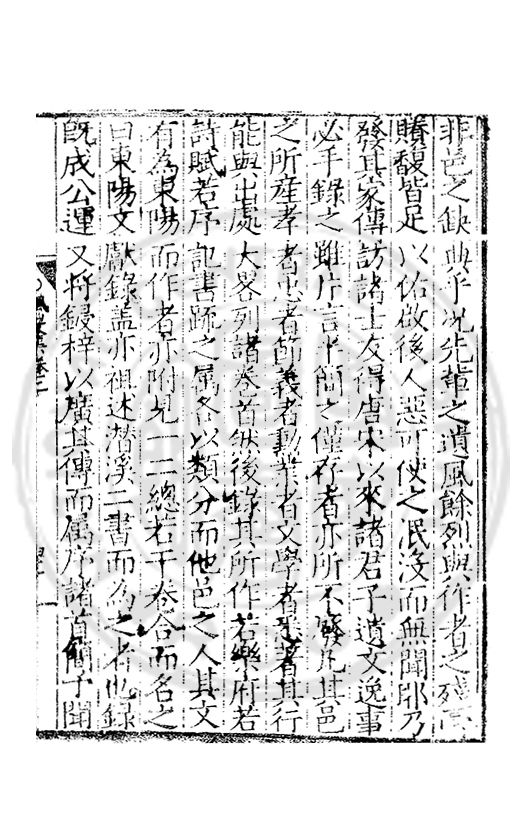 非邑之缺典乎况先輩之遺風餘烈與作者之殘膏
賸馥皆足以佑啟後人惡可使之泯沒而無聞耶乃
發其家傳訪諸士友得唐宋以來諸君子遺文逸事
必手錄之雖片言半簡之僅存者亦所不廢凡其邑
之所産孝者忠者節義者勳業者文學者悉著其行
能與出處大畧列諸卷首然後錄其所作若樂府若
詩賦若序記書䟽之属各以類分而他邑之人其文
有為東陽而作者亦附見一二總若干卷合而名之
曰東陽文獻錄盖亦祖述潜溪二書而為之者也錄
旣成公運又将鋟梓以廣其傳而属序諸首簡予聞